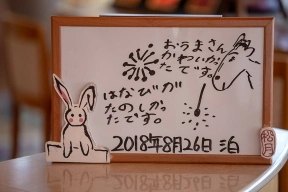 おうまさん
かわいかっ
たです。
はなびが
たのしかっ
たです。
2018年8月26日 泊